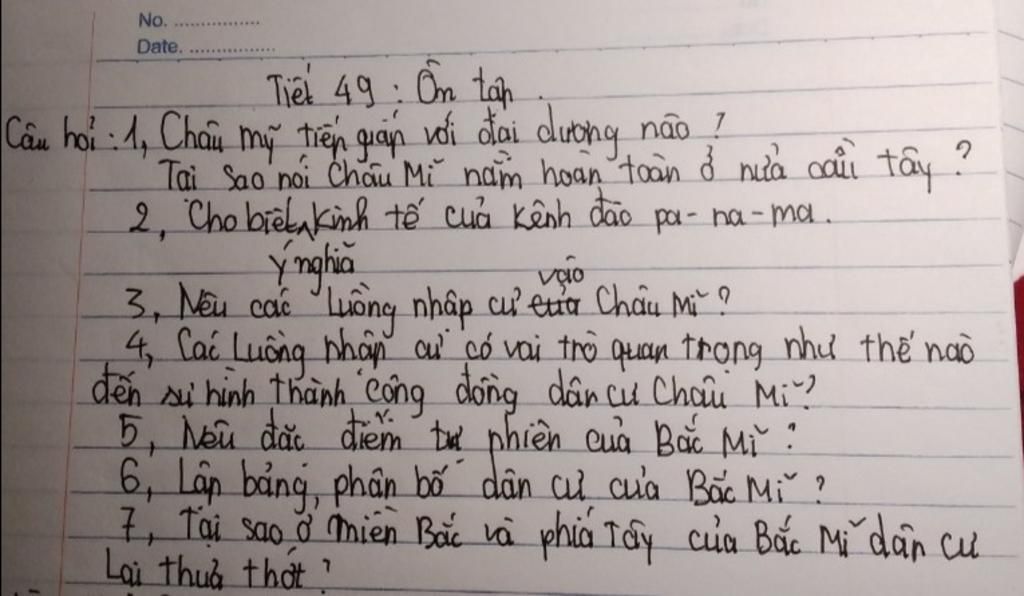 No. ................
Date. ................
Tiết 49 : Ôn tập.
Câu hỏi : 1, Châu mỹ tiếp giáp với đại dương nào ?
Tại sao nói Châu Mĩ nằm hoàn toàn ở nửa cầu tây ?
2, Cho biết kinh tế của kênh đào pa-na-ma.
ý nghĩa
vào
3, Nêu các luồng nhập cư của Châu Mĩ ?
4, Các luồng nhập cư có vai trò quan trọng như thế nào
đến sự hình thành cộng đồng dân cư Châu Mĩ ?
5, Nêu đặc điểm tự nhiên của Bắc Mĩ ?
6, Lập bảng, phân bố dân cư của Bắc Mĩ ?
7, Tại sao ở miền Bắc và phía Tây của Bắc Mĩ dân cư
lại thưa thớt ?